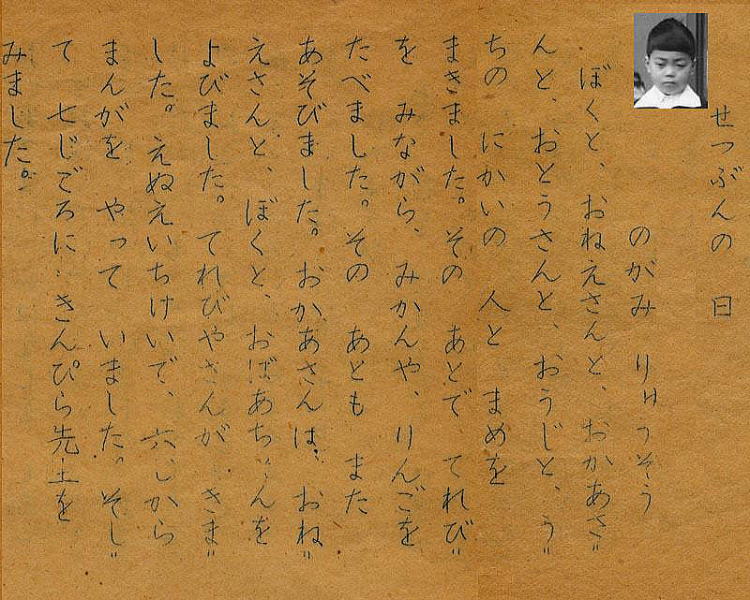 せつぶんの 日
のがみ りゅうそう
ぼくと、おねえさんと、おかあさ〃
んと、おとうさんと、おうじと、う〃
ちの にかいの 人と まめを
まきました。その あとで、てれび〃
を みながら、みかんや、りんごを
たべました。その あとも また
あそびました。おかあさんは、おね〃
えさんと、ぼくと、おばあちゃんを
よびました。てれびやさんが きま〃
した。えぬえいちけいで、六じから
まんがを やって いました。そし〃
て 七じごろに、きんぴら先生を
みました。